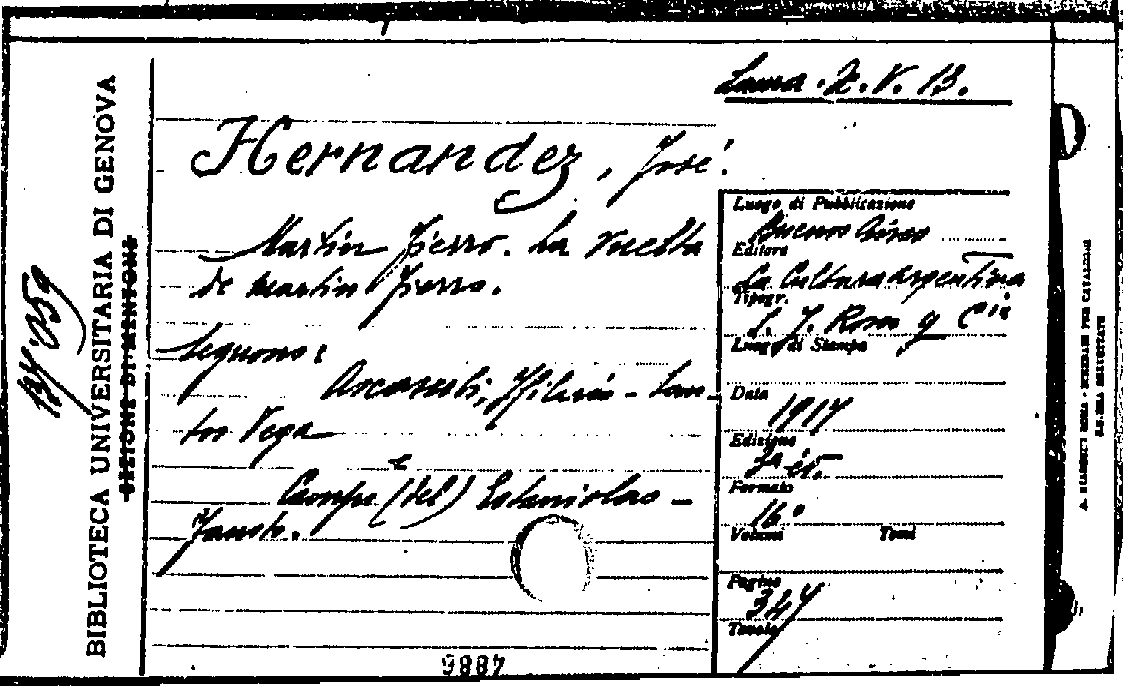 Laura. Z. V. 13.
Hernandez, José.
Martin Fierro. La Vuelta
de Martin Fierro.
Seguono:
Ascasubi, Hilario - San-
tos Vega
Campo (del) Estanislao -
Fausto.
Luogo di Pubblicazione
Buenos Aires
Editore
La Cultura Argentina
Tipogr.
L. J. Rosso y Cia
Luogo di Stampa
Data
1917
Edizione
Formato
16°
Volumi Tomi
Pagine
347
Tavole
9887
BIBLIOTECA UNIVERSITARIA DI GENOVA